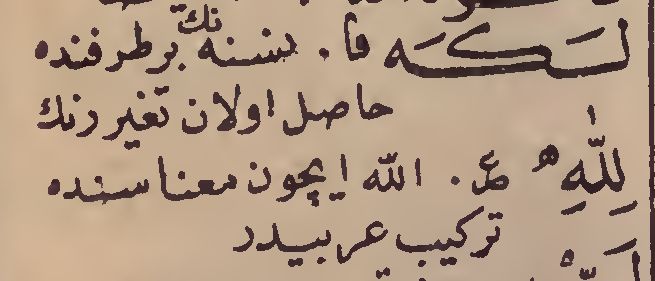 لَكَه فا. بر نسنه‌نك بر طرفنده
حاصل اولان تغير رنك
لِلّٰهِ عر. الله ايچون معناسنده
تركيب عربيدر